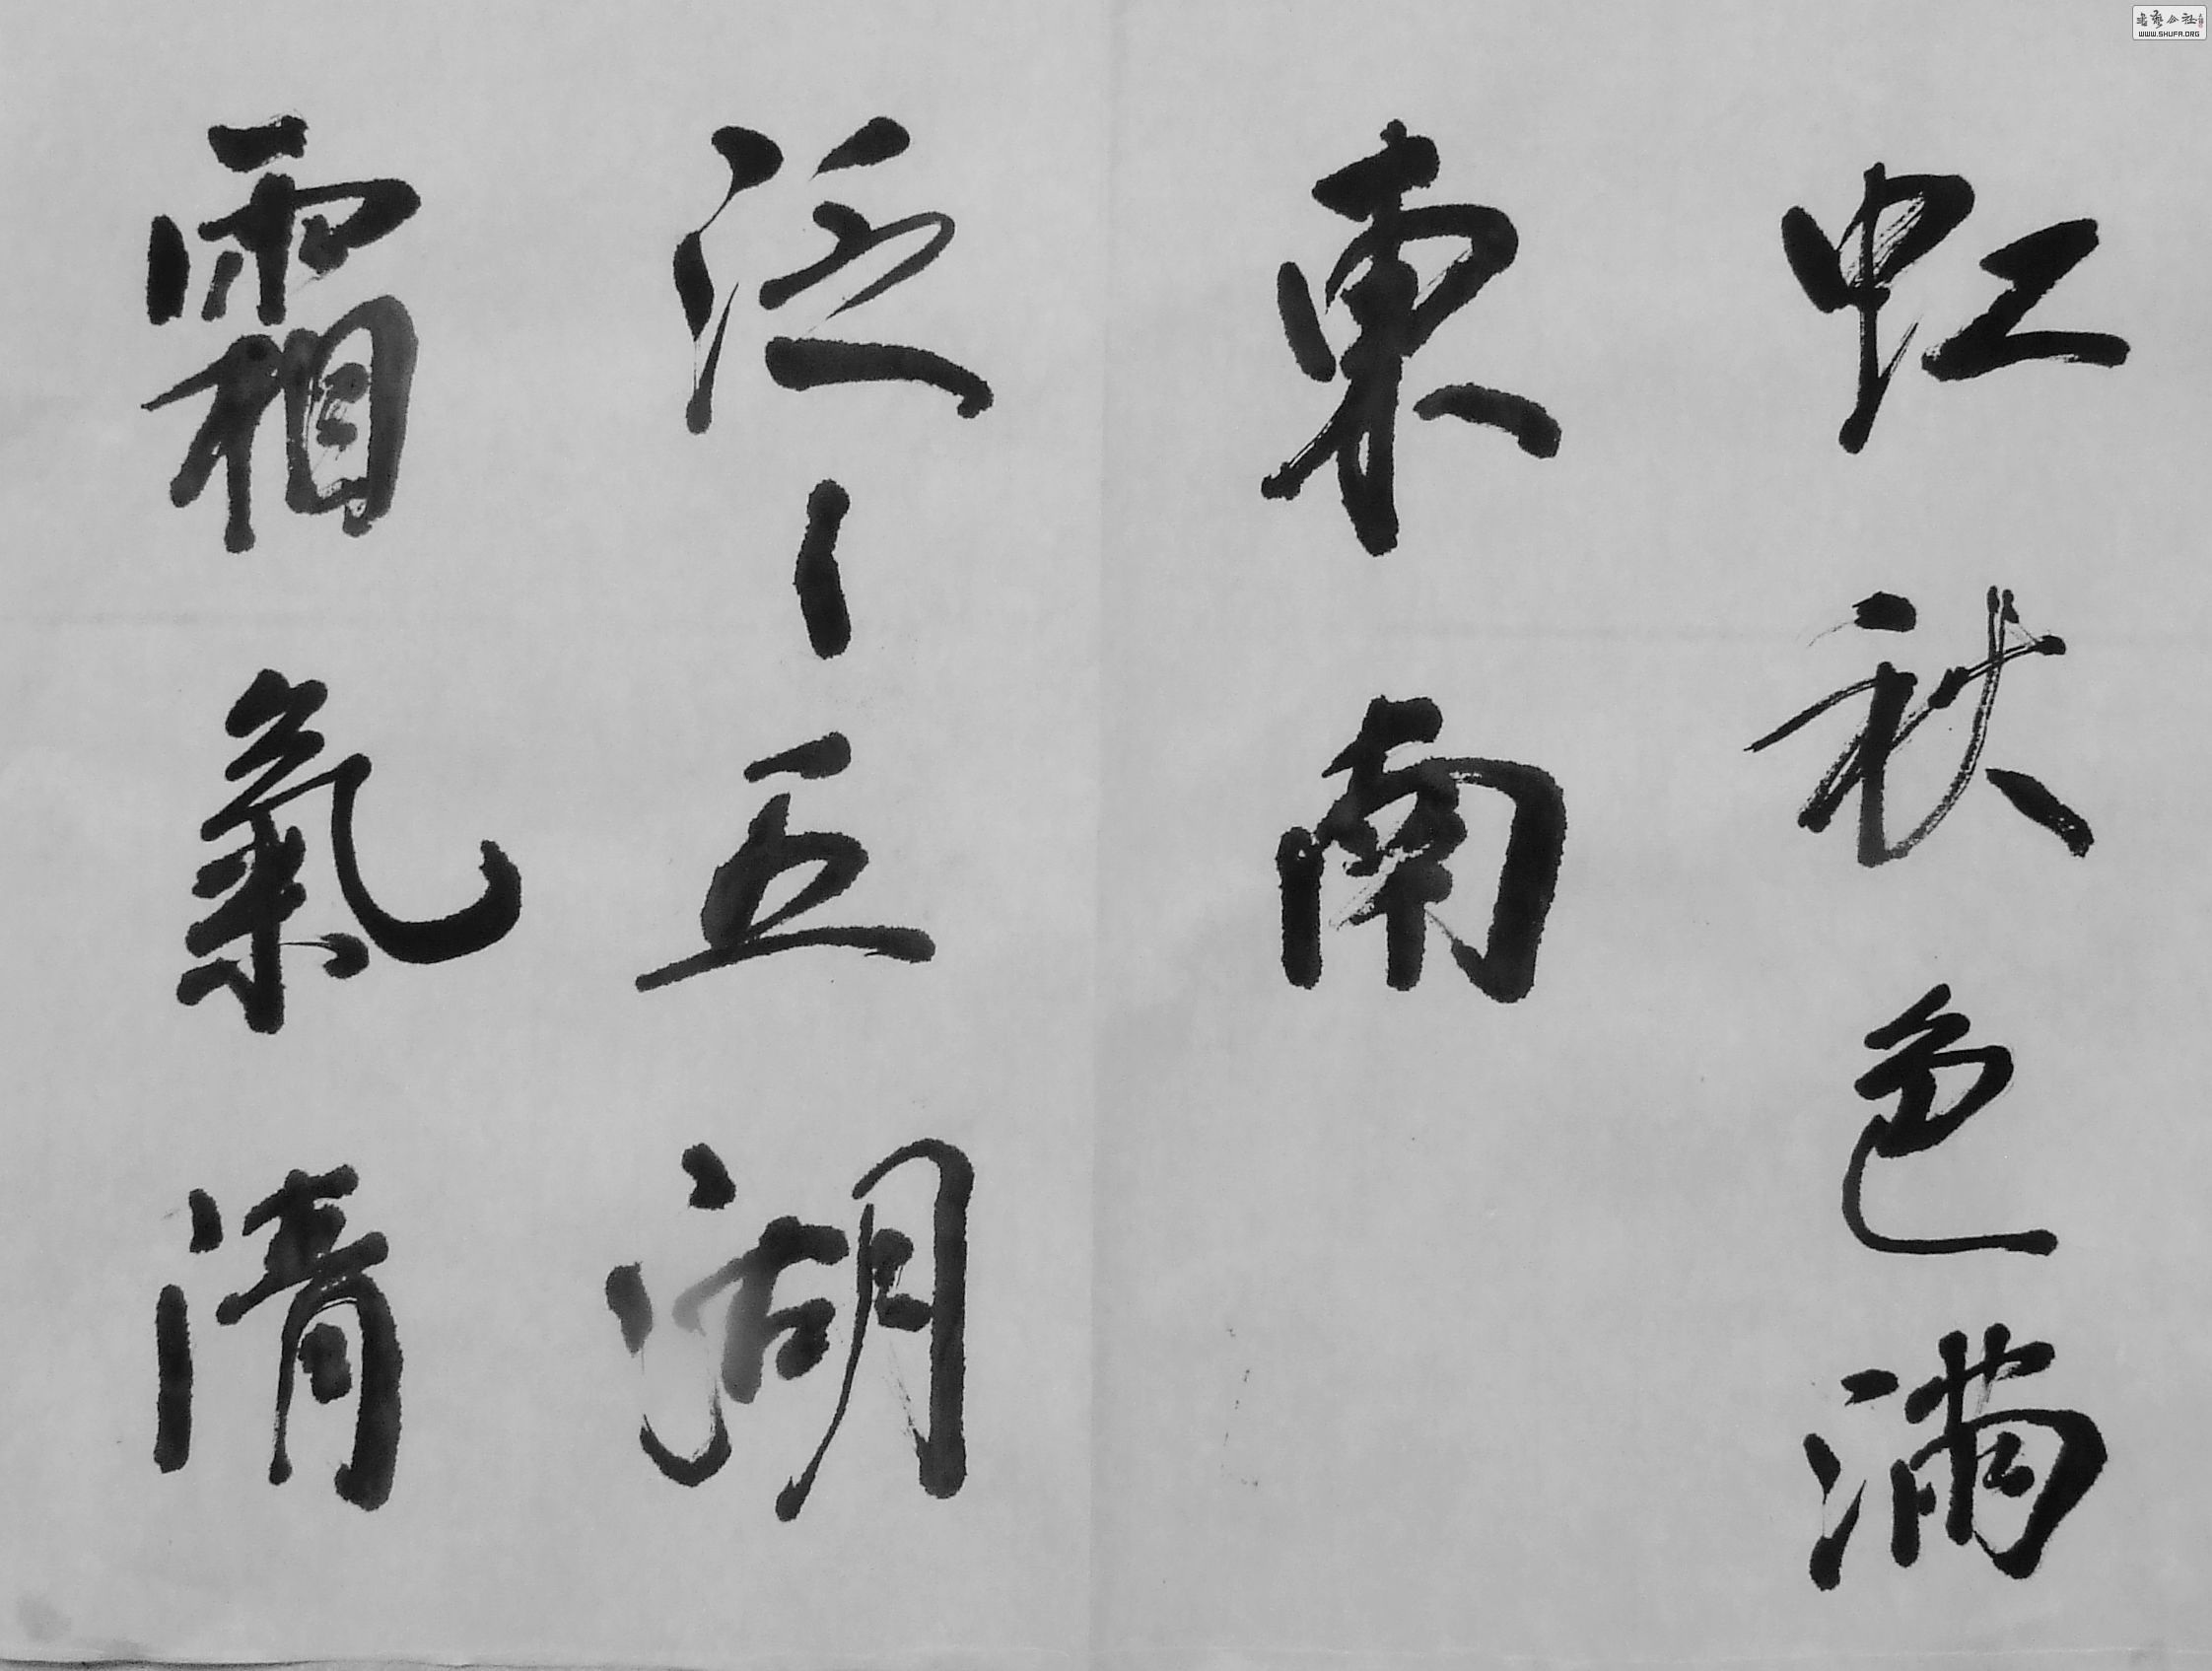 虹秋色滿
東南
泛〻五湖
霜氣清
書藝公社
WWW.SHUFA.ORG